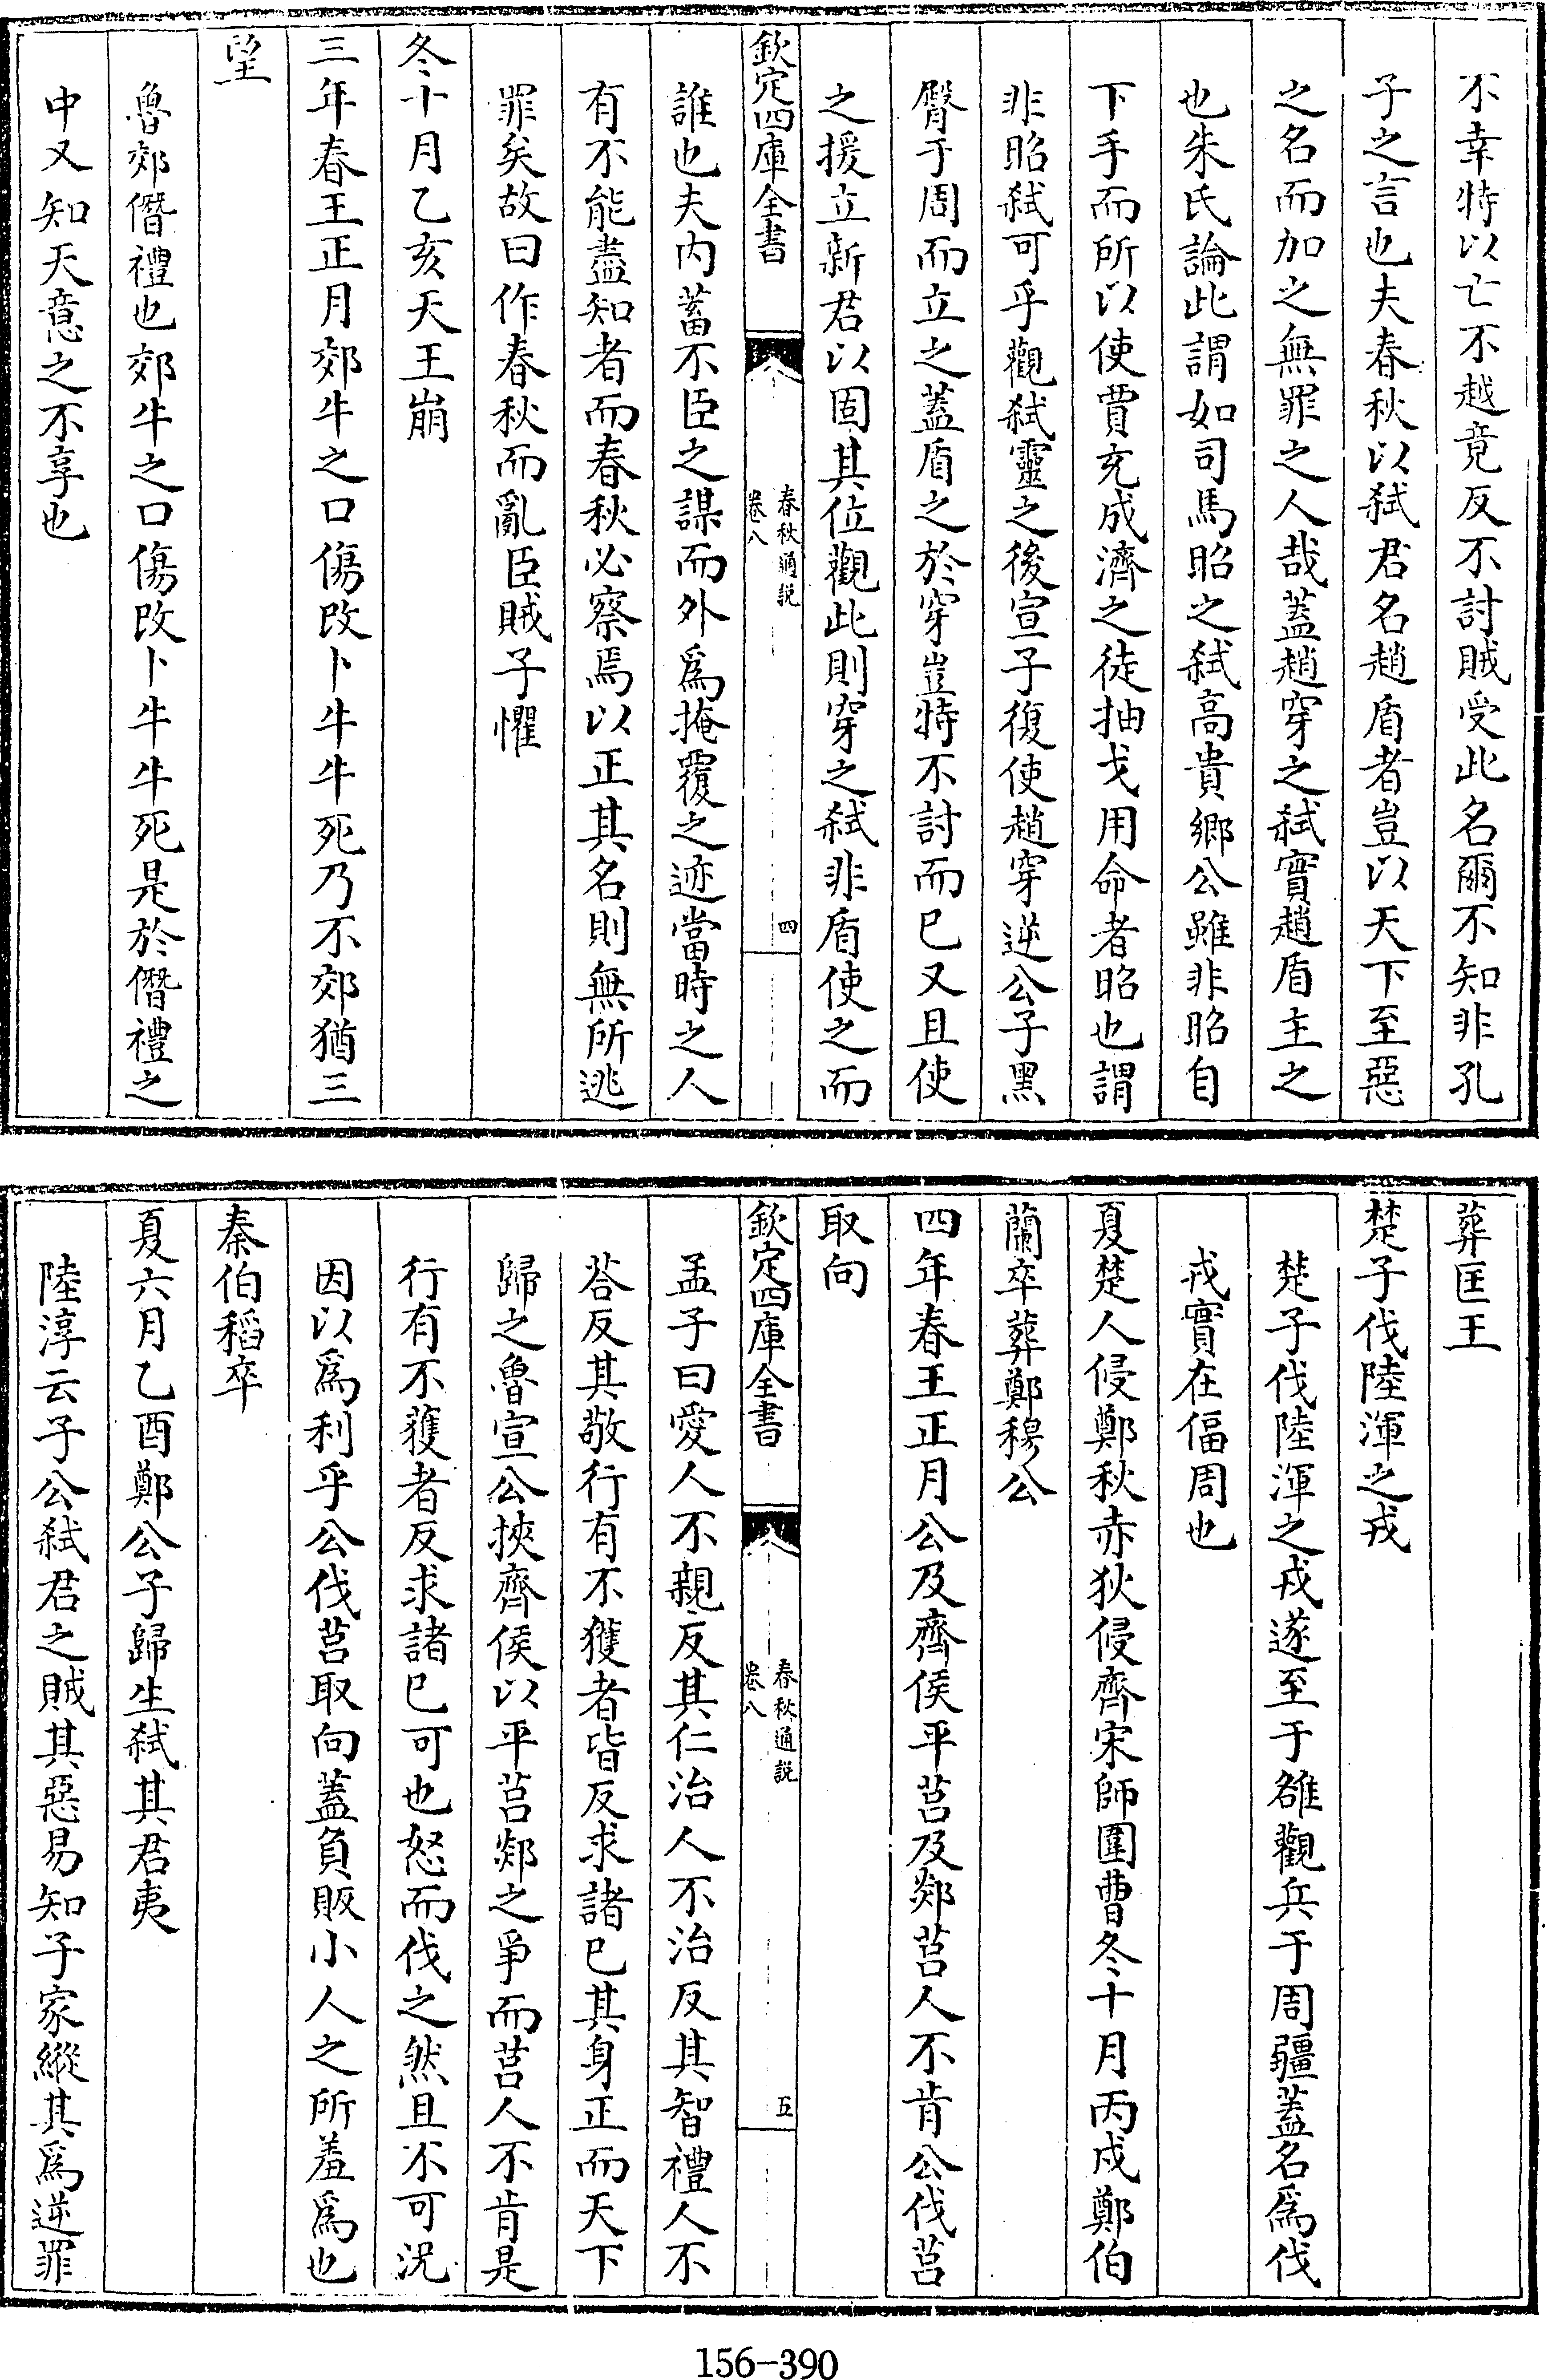 不幸特以亡不越竟反不討賊受此名爾不知非孔
子之言也夫春秋以弑君名趙盾者豈以天下至惡
之名而加之無罪之人哉蓋趙穿之弑實趙盾主之
也朱氏論此謂如司馬昭之弑高貴鄉公雖非昭自
下手而所以使賈充成濟之徒抽戈用命者昭也謂
非昭弑可乎觀弑靈之後宣子復使趙穿逆公子黑
臀于周而立之蓋盾之於穿豈特不討而已又且使
之援立新君以固其位觀此則穿之弑非盾使之而
欽定四庫全書
春秋通説
卷八
四
誰也夫内蓄不臣之謀而外爲掩覆之迹當時之人
有不能盡知者而春秋必察焉以正其名則無所逃
罪矣故曰作春秋而亂臣賊子懼
冬十月乙亥天王崩
三年春王正月郊牛之口傷改卜牛牛死乃不郊猶三
望
魯郊僭禮也郊牛之口傷改卜牛牛死是於僭禮之
中又知天意之不享也
葬匡王
楚子伐陸渾之戎
楚子伐陸渾之戎遂至于雒觀兵于周疆蓋名爲伐
戎實在偪周也
夏楚人侵鄭秋赤狄侵齊宋師圍曹冬十月丙戌鄭伯
蘭卒葬鄭穆公
四年春王正月公及齊侯平莒及郯莒人不肯公伐莒
取向
欽定四庫全書
春秋通説
卷八
五
孟子曰愛人不親反其仁治人不治反其智禮人不
荅反其敬行有不獲者皆反求諸已其身正而天下
歸之魯宣公挾齊侯以平莒郯之爭而莒人不肯是
行有不獲者反求諸已可也怒而伐之然且不可況
因以爲利乎公伐莒取向蓋負販小人之所羞爲也
秦伯稻卒
夏六月乙酉鄭公子歸生弑其君夷
陸淳云子公弑君之賊其惡易知子家縱其爲逆罪
156-390